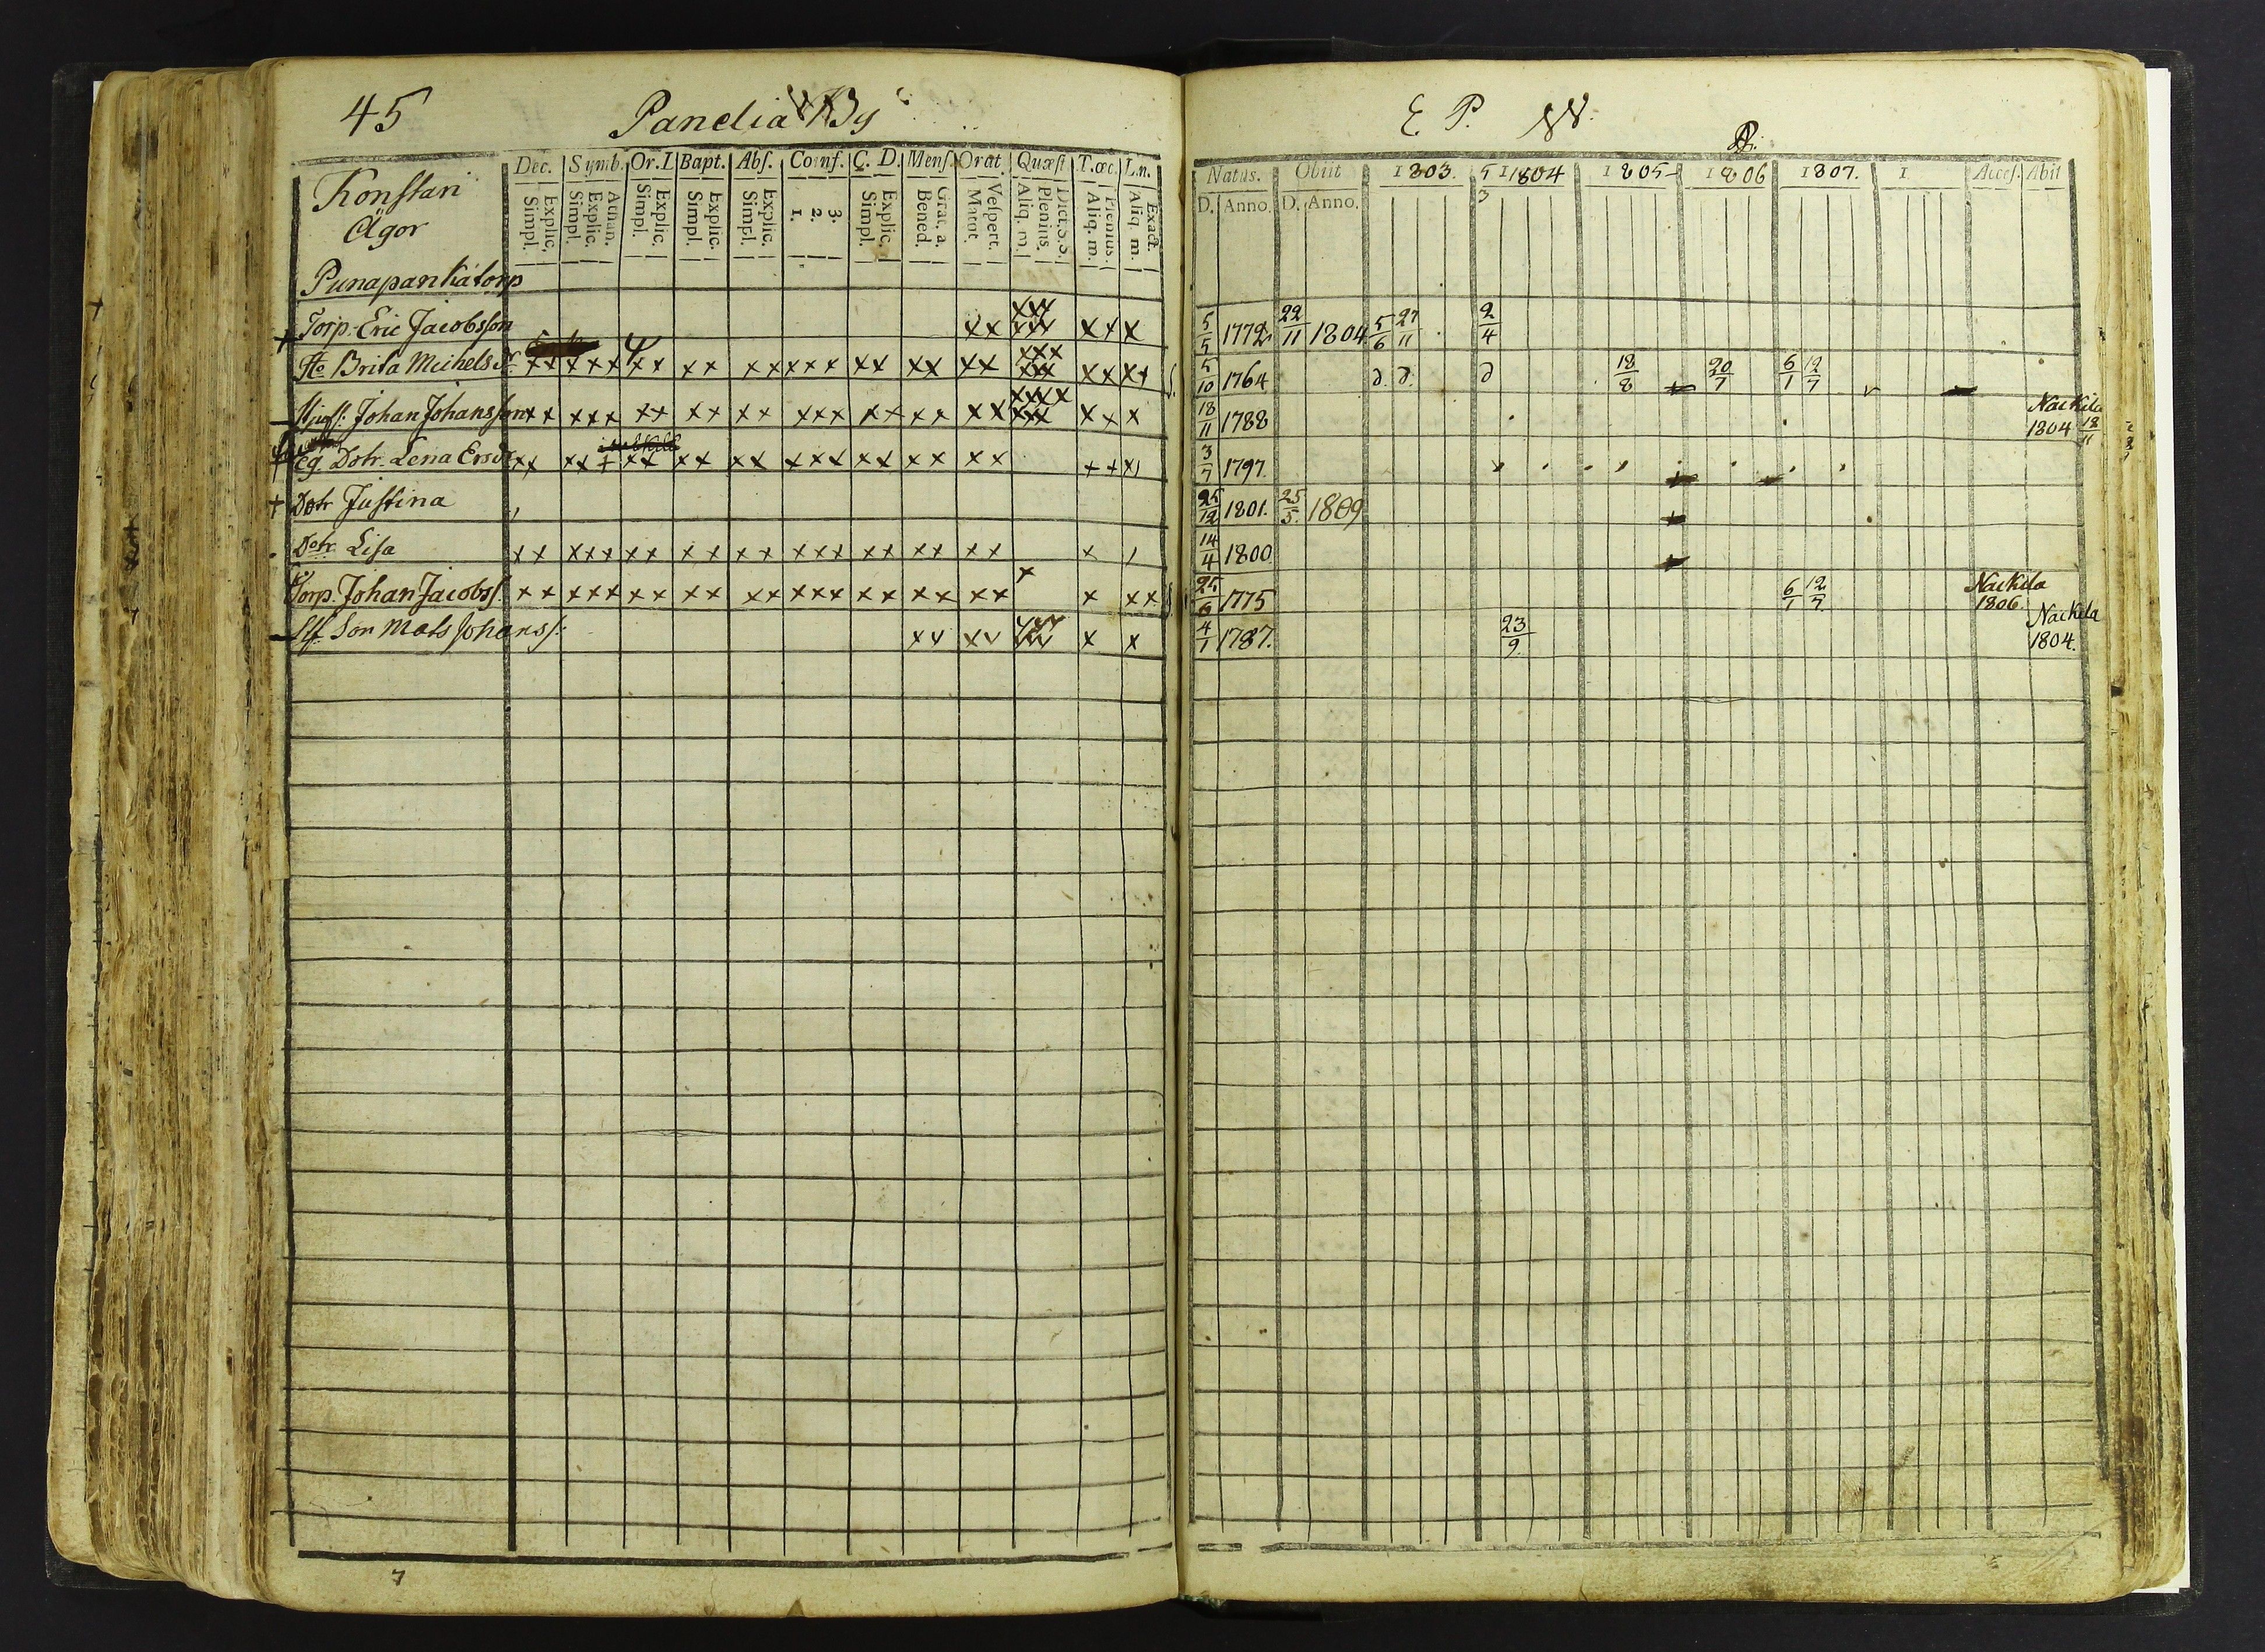 45 Panelia By
E. P. W.
Konstari
Ägor
Dec. Symb. Or. D Bapt. Abs. Conf. C. D. Mens. Orat. Quæst T. œc. L. n.
Explic. Simpl. Athan. Explic. Simpl. Explic. Simpl. Explic. Simpl. Explic. Simpl. 3. 2. 1. Explic. Simpl. Grat. a. Bened. Vespert. Matut. Dict. S. S. Plenius. Aliq. m. Plenius. Aliq. m. Exact. Aliq. m.
Natus. Obiit 1803. 1804 1805 1806 1807. 1 Acces. Abit
D. Anno. D. Anno.
Punapankatorp
Torp. Eric Jacobsson xx xxx xxx xxx x 5/5 1772 22/11 1804 5/6 27/11 2/4
H:o Brita Michelsdr xx xxx xx xx xx xxx xx xx xx xxx xxx xx xx 5/10 1764 18/8 20/7 6/1 12/7
Johan Johansson xx xxx xx xx xx xxx xx xx xx xxxx xxx xx x 18/11 1788 Nackila 1804 18/11
Dotr. Lena Ersdr xx xxx xx xx xx xxx xx xx xx xx x 3/7 1797.
Dotr Justina 25/12 1801. 25/5. 1809
Dotr. Lisa xx xxx xx xx xx xxx xx xx xx x 14/4 1800
Torp. Johan Jacobss. xx xxx xx xx xx xxx xx xx xx x x xx 25/6 1775 6/1 12/7 Nackila 1806.
Son Mats Johanss: xx xx x x 4/1 1787. 23/9. Nackila 1804.
7